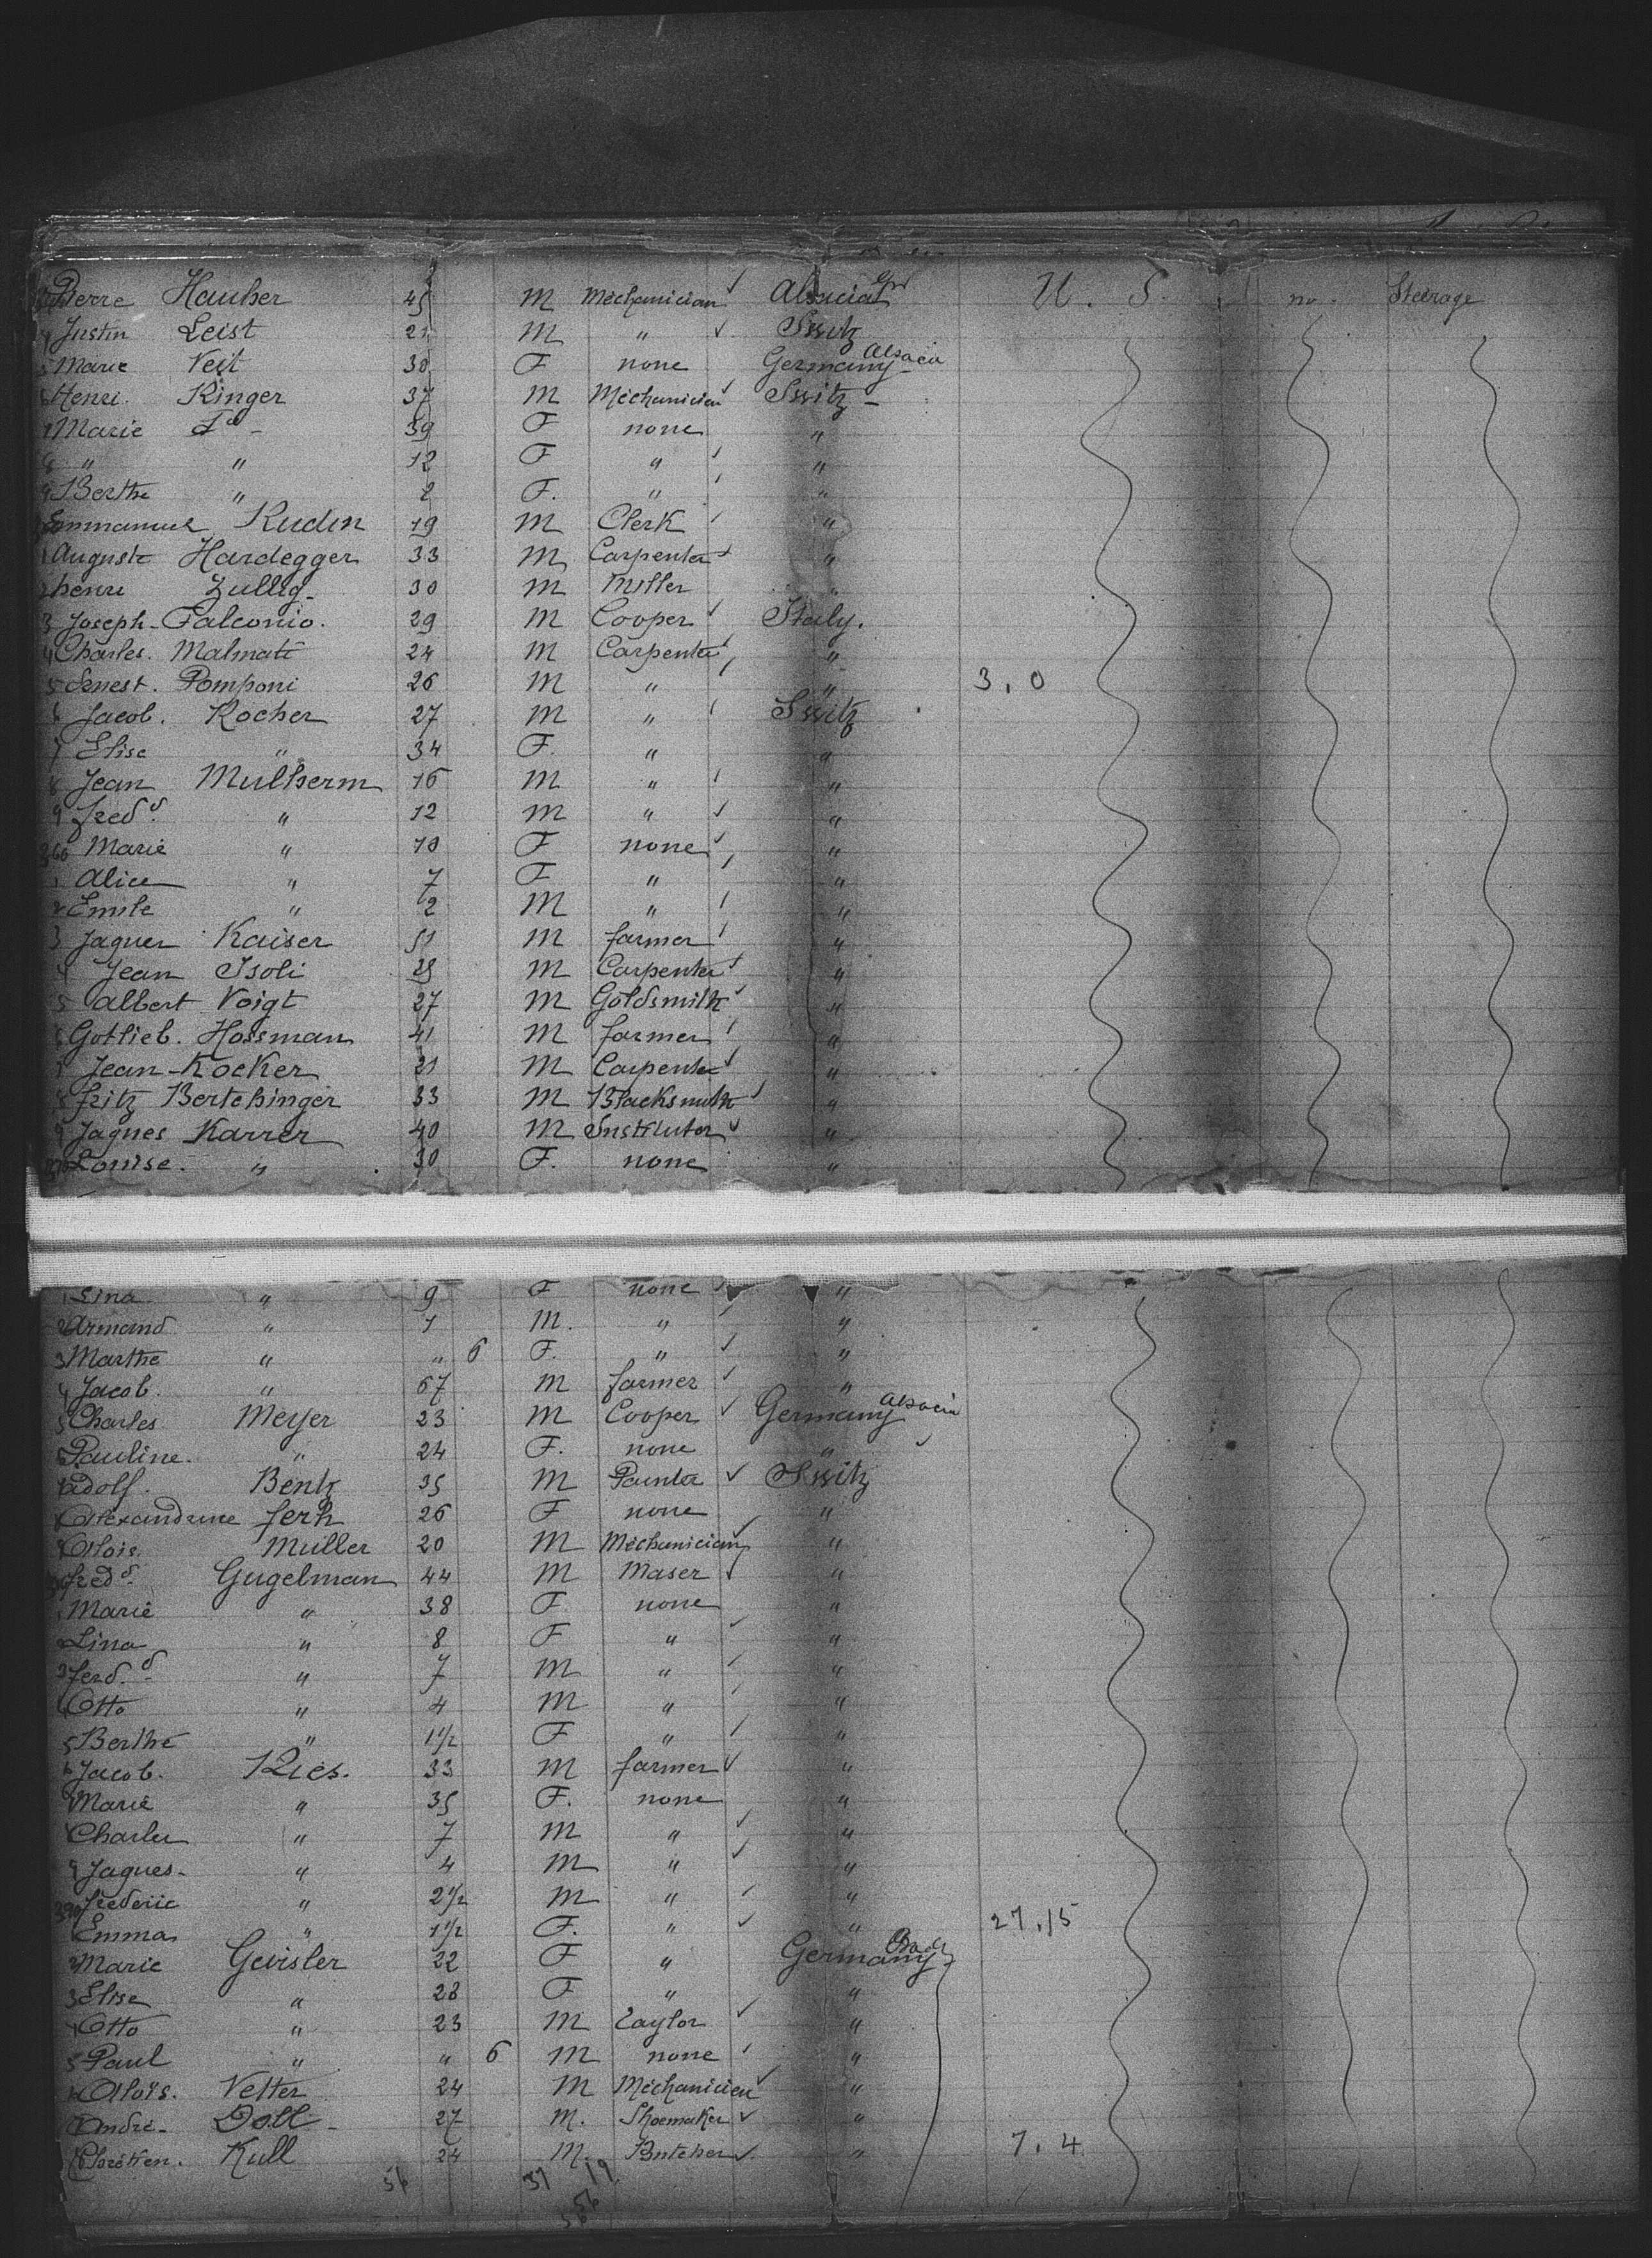 Pierre Hauser 45 M Mechanician Alsacia Ger U. S. no. Steerage
4 Justin Leist 21 M " Switz
5 Marie Veit 30 F none Germany Alsacia
6 Henri. Ringer 37 M Mechanicien Switz -
7 Marie Do - 39 F none "
8 " " 12 F " "
9 Berthe " 2 F. " "
Emmanuel Rudin 19 M Clerk "
1 Auguste Hardegger 33 M Carpenter "
2 henri Zullig - 30 M Miller "
3 Joseph - Falconio. 29 M Cooper Italy.
4 Charles. Malmati 24 M Carpenter "
5 Ernest. Pomponi 26 M " " 3,0
6 Jacob. Kocher 27 M " Switz
7 Elise " 34 F. " "
8 Jean Mulherm 16 M " "
9 fredd. " 12 M " "
360 Marie " 10 F none "
1 Alice " 7 F " "
2 Emile " 2 M " "
3 Jaques Kaiser 51 M farmer "
4 Jean Isoli 25 M Carpenter "
5 Albert Voigt 27 M Goldsmith "
6 Gottlieb. Hossman 41 M farmer "
7 Jean - Kocker 21 M Carpenter "
8 fritz Bertchinger 33 M Blacksmith "
9 Jaques Karrer 40 M Institutor "
370 Louise. " 30 F. none "
1 Lina " 9 F none "
2 Armand " 1 M. " "
3 Marthe " " 6 F. " "
4 Jacob. " 67 M farmer "
5 Charles Meyer 23 M Cooper Germany Alsacia
6 Pauline. " 24 F. none "
7 Adolf. Bentz 35 M Painter Switz
8 Alexandrine ferh 26 F none "
9 Alois. Muller 20 M Mechanician "
fredd. Gugelman 44 M Maser "
1 Marie " 38 F none "
2 Lina " 8 F " "
3 ferd.d " 7 M " "
4 Otto " 4 M " "
5 Berthe " 1 1/2 F " "
6 Jacob. Ries. 33 M farmer "
7 Marie " 35 F. none "
8 Charles " 7 M " "
9 Jaques - " 4 M " "
390 frederic " 2 1/2 M " "
1 Emma " 1 1/2 F. " " 27,15
2 Marie Geisler 22 F " Germany Bade
3 Elise " 28 F " "
4 Otto " 23 M Taylor "
5 Paul " " 6 M none "
6 Aloïs. Vetter 24 M Mechanicien "
7 André - Doll - 27 M. Shoemaker "
8 Chrétien. Kull 24 M. Butcher " 7.4
56 37 19
56